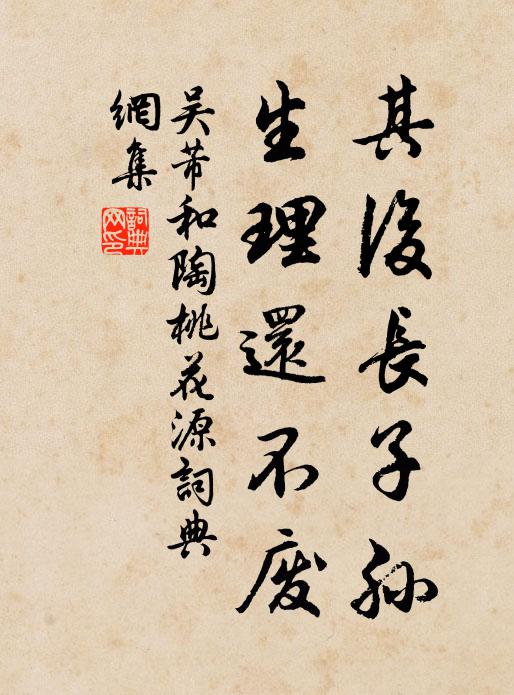 其後長子孫
生理還不废
吴芾和陶桃花源詞典
網集
詞典
网印